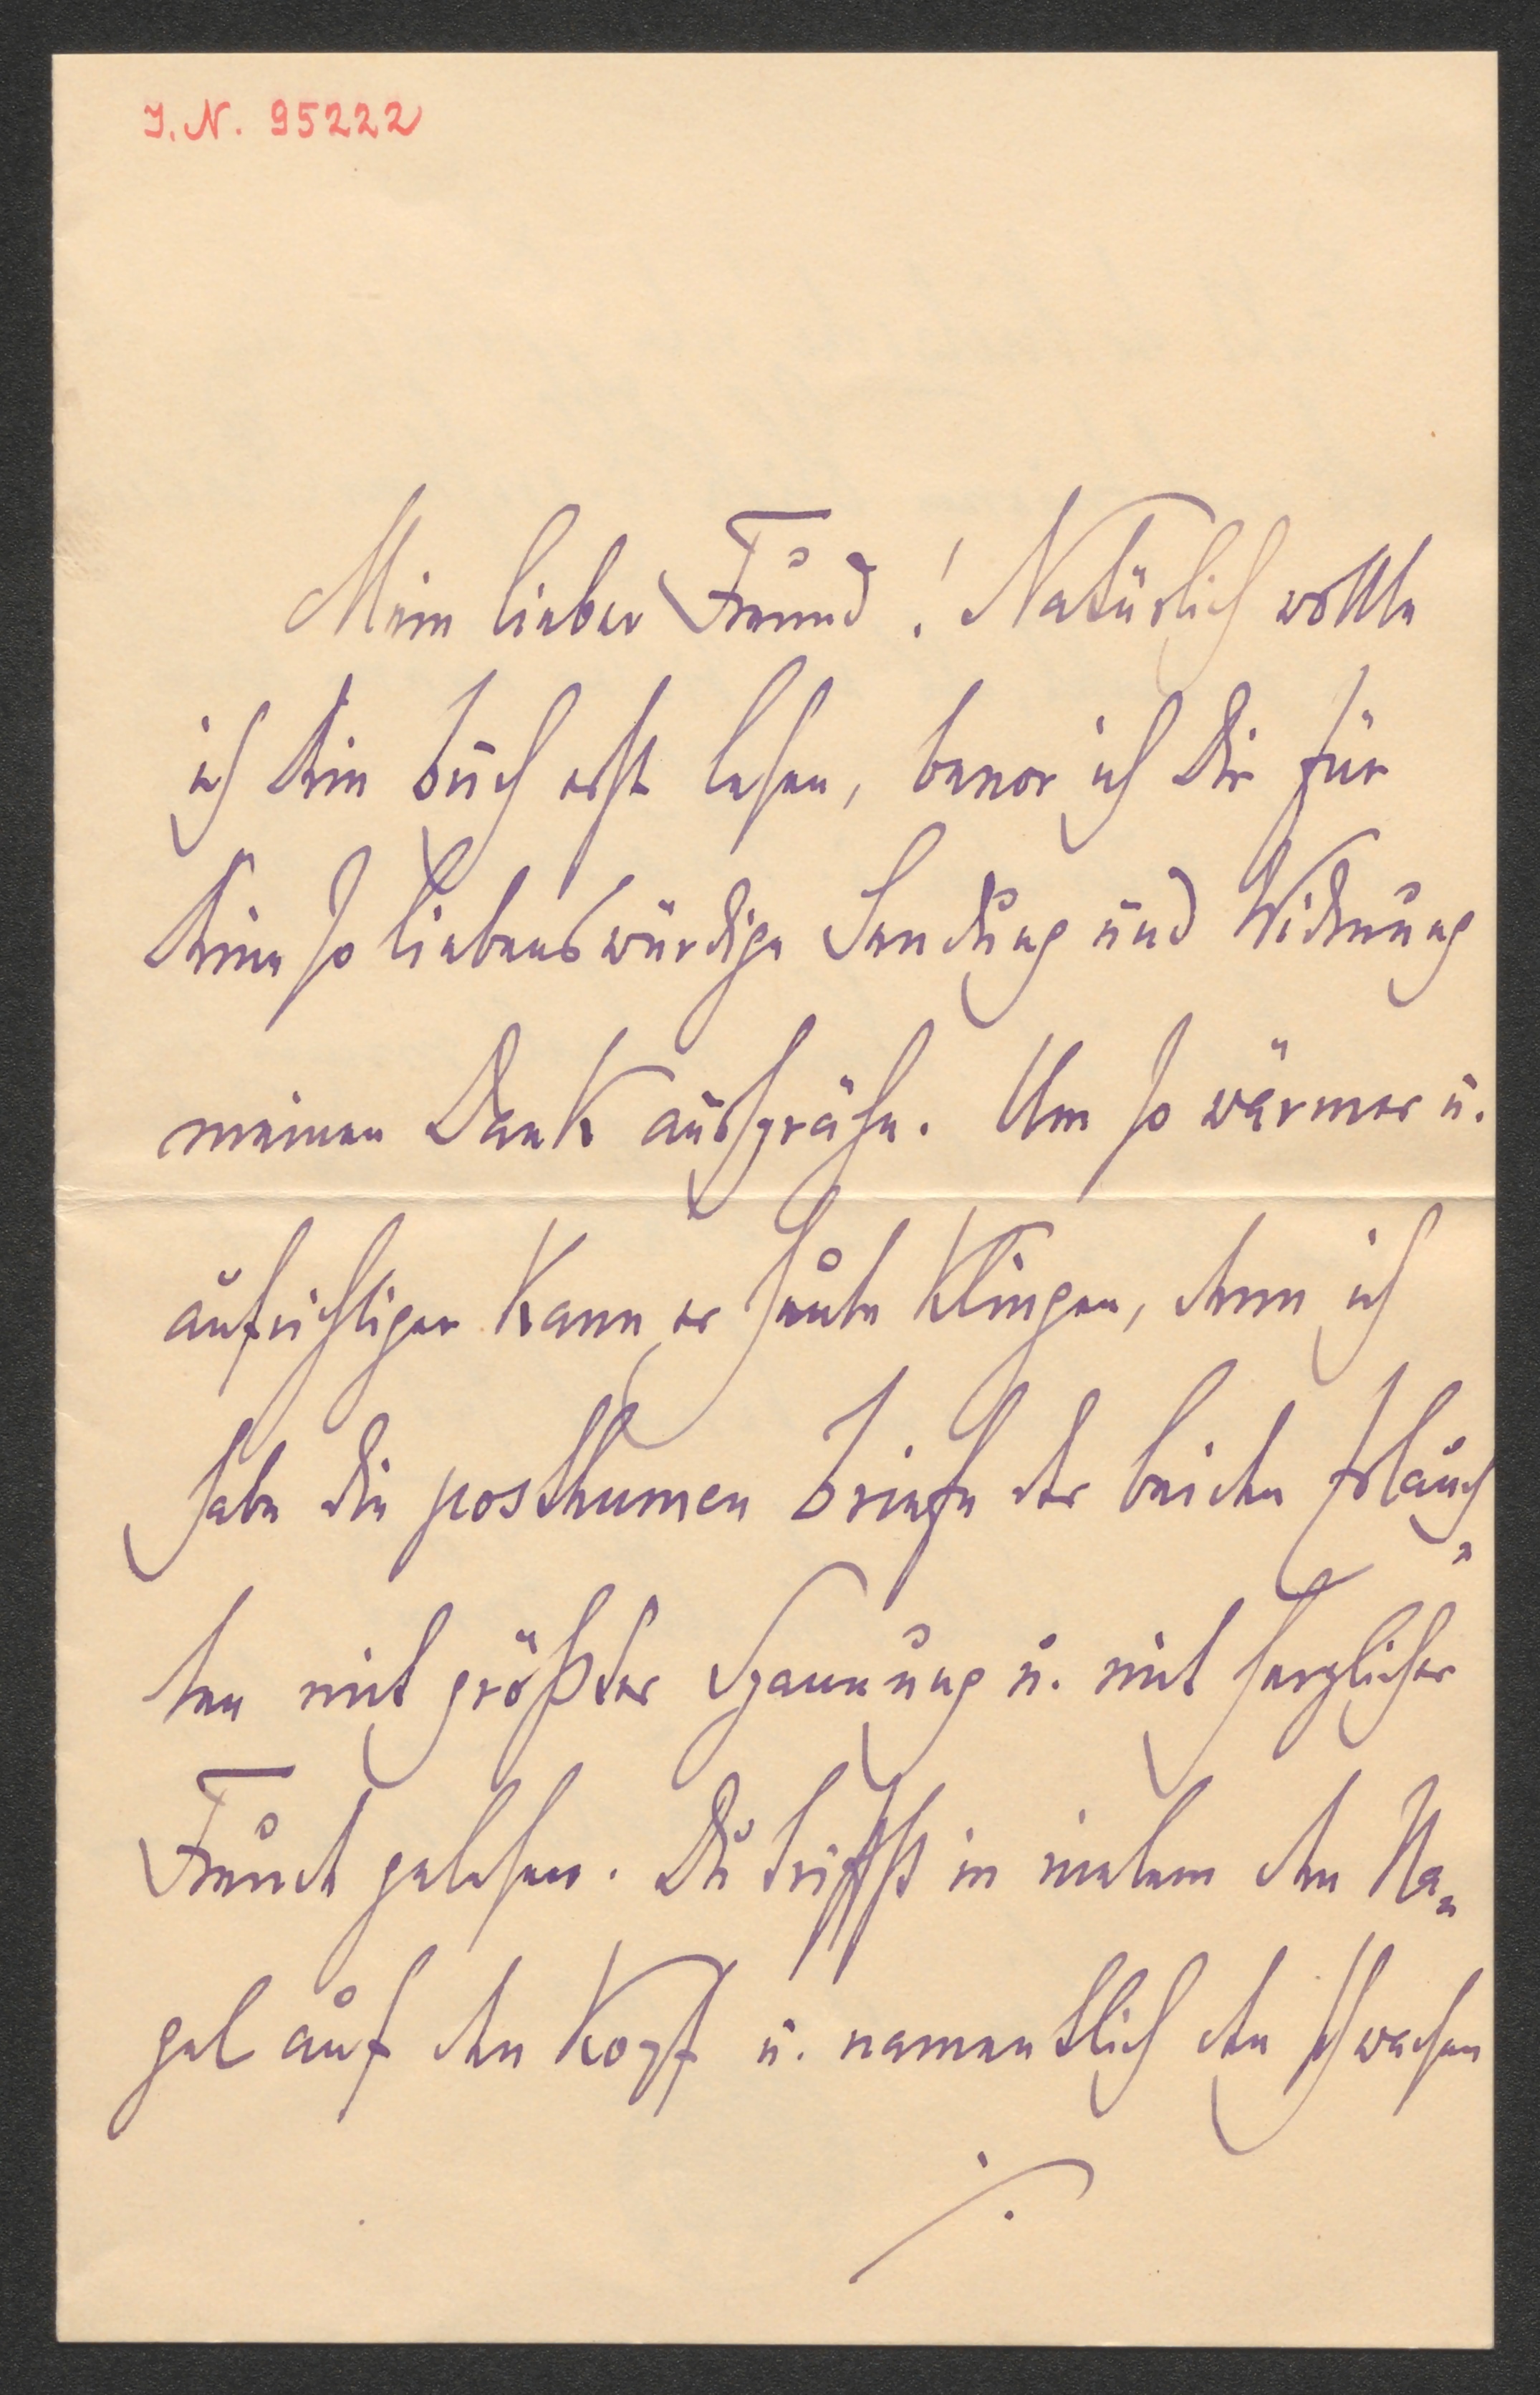 I. N. 95222
Mein lieber Freund! Natürlich wollte
ich Dein Buch erst lesen, bevor ich Dir für
Deine so liebenswürdige Sendung und Widmung
meinen Dank ausspräche. Um so wärmer u.
aufrichtiger kann er heute klingen, denn ich
habe die posthumen Briefe der beiden Erlauch„
ten mit größter Spannung u. mit herzlicher
Freude gelesen. Du triffst in vielem den Na„
gel auf den Kopf u. namentlich den schwachen
./.